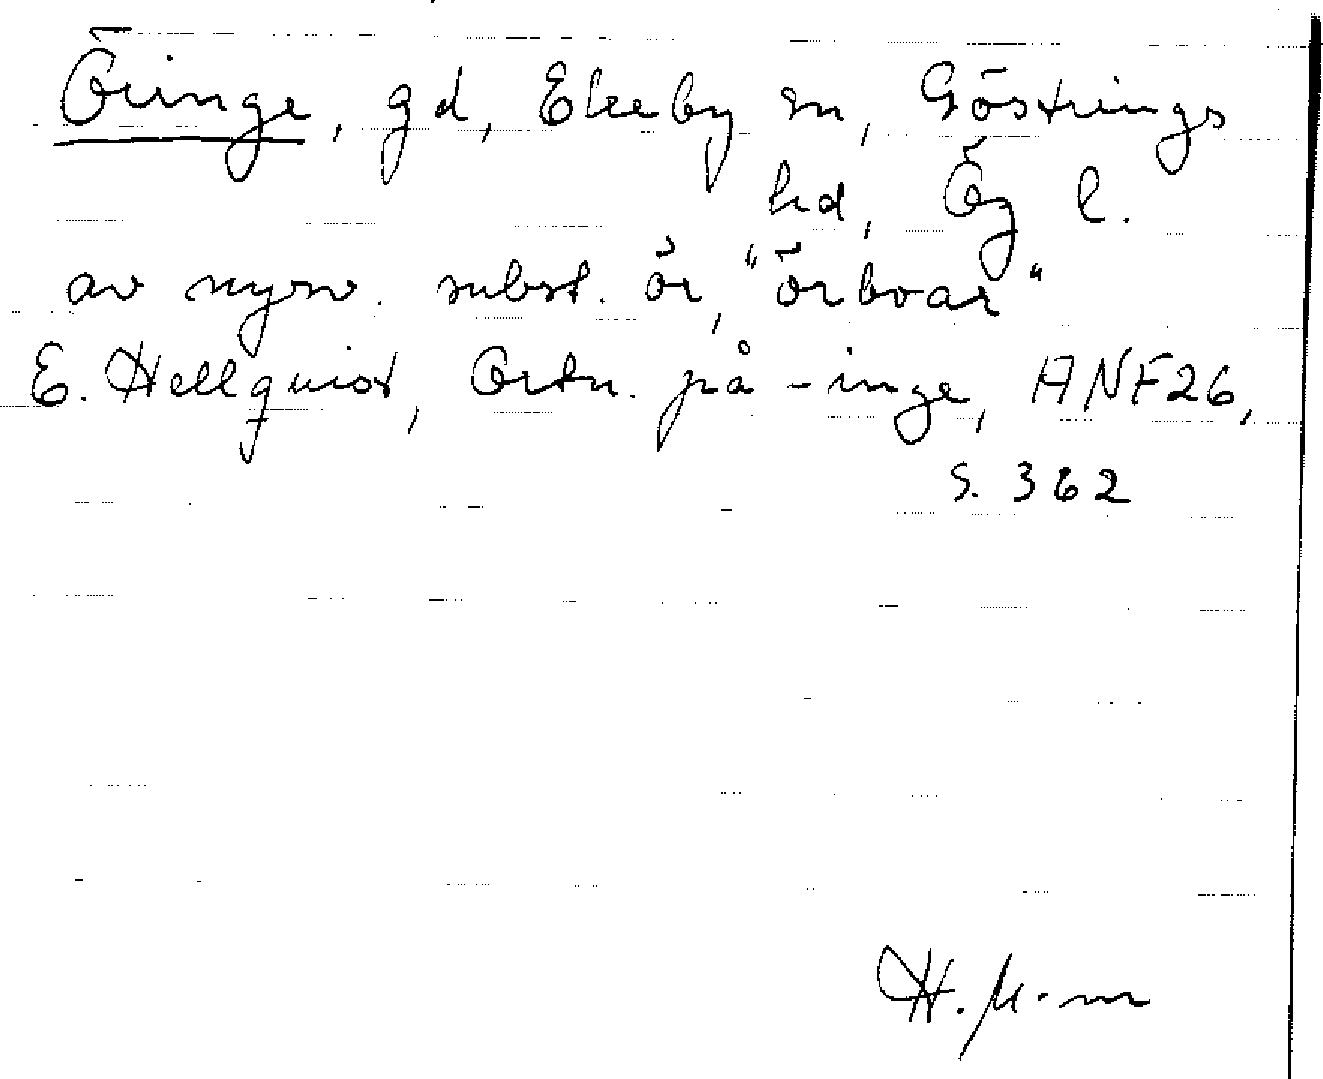 Öringe, gd, Ekeby sn, Göstrings
hd, Ög l.
av nysv. subst. ör, "örboar"
E. Hellquist, Ortn. på -inge, ANF26,
S. 362
H. M-m